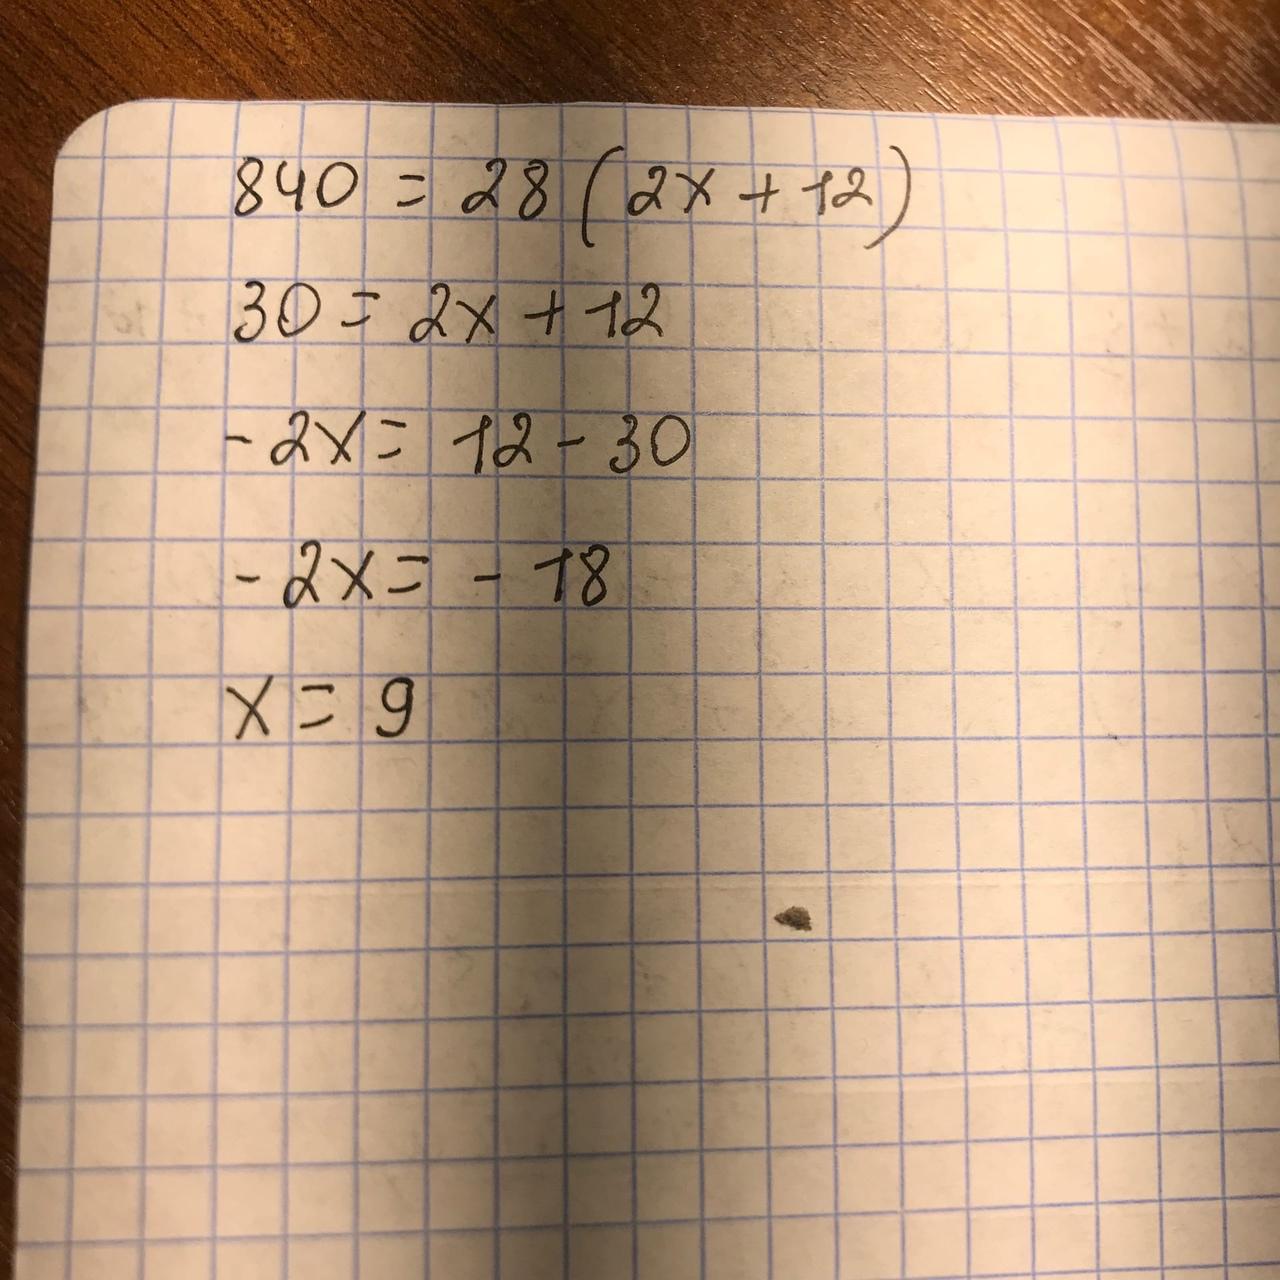 840 = 28 (2x + 12)
30 = 2x + 12
- 2x = 12 - 30
- 2x = - 18
x = 9